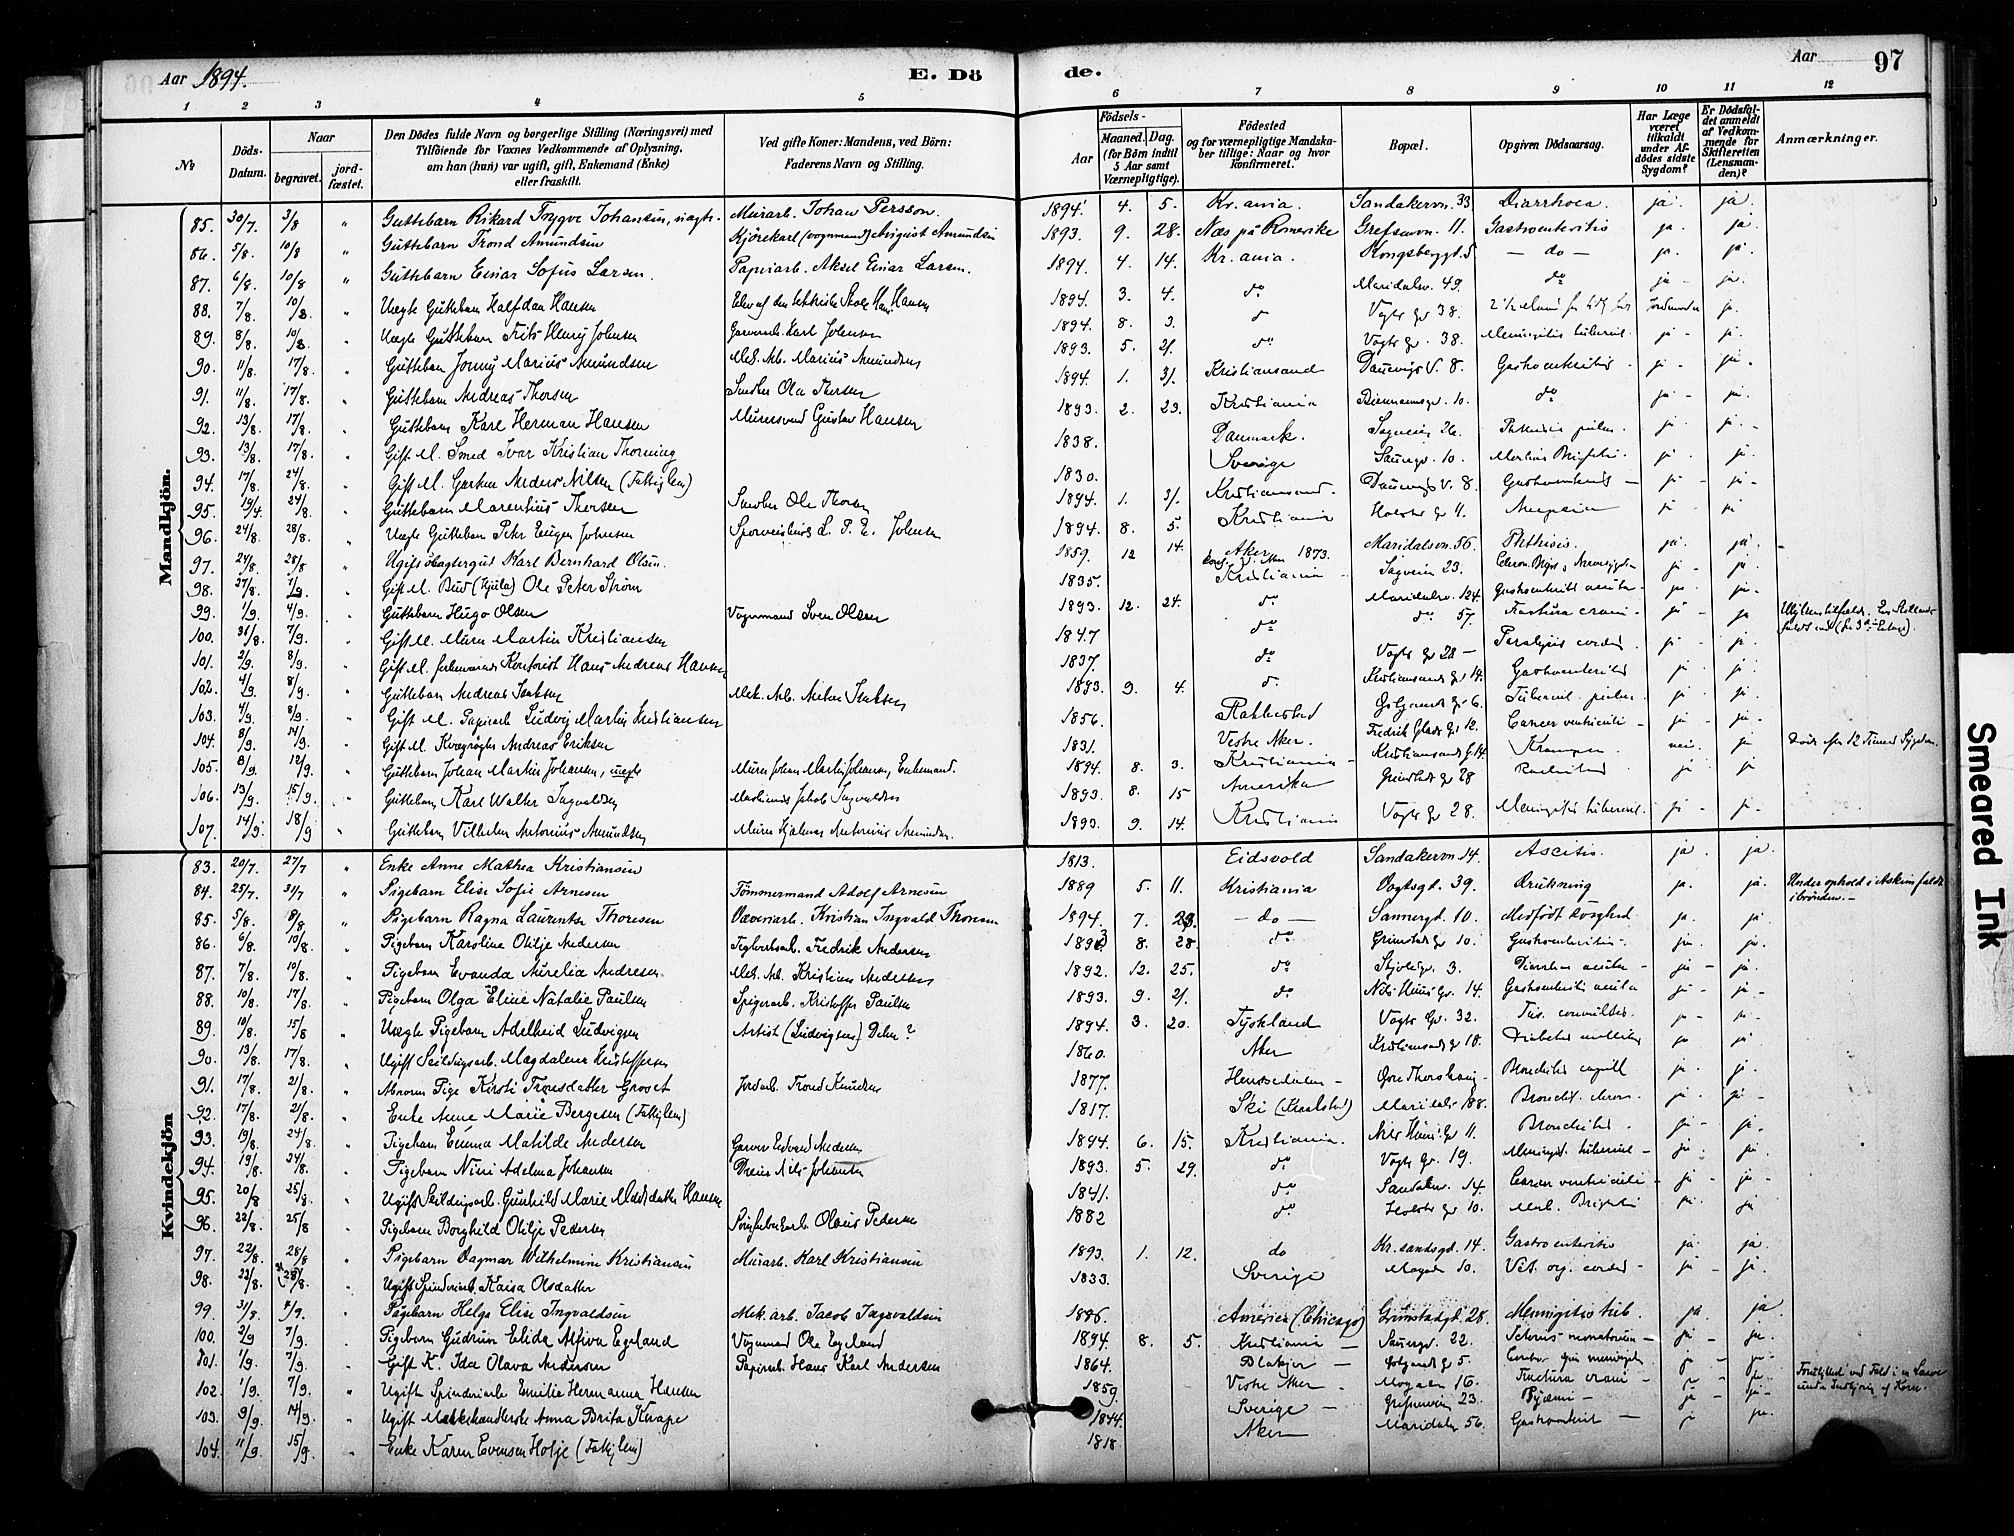 Aar 1894. E. Döde. Aar 97
1 2 3 4 5 6 7 8 9 10 11 12
No Döds-Datum. Naar begravet. jordfæstet. Den Dödes fulde Navn og borgerlige Stilling (Næringsvei) med Tilföiende for Voxnes Vedkommende af Oplysning, om han (hun) var ugift, gift, Enkemand (Enke) eller fraskilt. Ved gifte Koner: Mandens, ved Börn: Faderens Navn og Stilling. Födsels- Aar Maaned. Dag. (for Börn indtil 5 Aar samt Værnepligtige). Födested og for værnepligtige Mandskaber tillige: Naar og hvor konfirmeret. Bopæl. Opgiven Dödsaarsag. Har Læge været tilkaldt under Afdödes sidste Sygdom? Er Dödsfaldet anmeldt af Vedkommende for Skifteretten (Lensmanden)? Anmærkninger.
Mandkjön.
85. 30/7. 3/8 " Guttebarn Rikard Trygve Johansen, uægte. Murarb. Johan Persson. 1894 4. 5. Kr.ania. Sandakervn. 33 Diarrhoea. ja. ja.
86. 5/8. 10/8 " Guttebarn Trond Amundsen Kjörekarl (vognmand) August Amundsen 1893. 9. 28. Næs på Romerike Grefsenvn. 11. Gastroenteritis ja. ja
87. 6/8. 10/8 " Guttebarn Einar Sofus Larsen. Papirarb. Aksel Einar Larsen. 1894. 4. 14. Kr.ania. Kongsberggd. 5 — do — ja. ja.
88. 7/8. 10/8 " Uægte Guttebarn Halfdan Hansen 1894. 3. 4. do Maridalsv. 49. do ja – ja.
89. 8/8. 10/8 " Uægte Guttebarn Frits Henry Johnsen Garverarb. Karl Johnsen 1894. 8. 3. do Vogts gd 38. Jordmoder ja.
90. 11/8. 17/8. " Guttebarn Jonny Marius Amundsen Mek. Arb. Marius Amundsen 1893. 5. 21. do Vogts gd. 38. Meningitis tubercul. ja – ja.
91. 11/8. 17/8. " Guttebarn Andreas Thorsen Snedker Ola Thorsen 1894. 1. 31. Kristiansand 8. Gastroenteritis ja – ja.
92. 13/8. 17/8. " Guttebarn Karl Herman Hansen Murersvend Gustav Hansen 1893. 2. 23. Kristiania 10. do ja – ja.
93. 13/8. 17/8. " Gift M. Smed Ivar Kristian Thorning 1838. Danmark. Sagveien 26. ja. ja.
94. 17/8. 24/8. " Gift M. Gartner Anders Nilsen (Fattiglem) 1830. Sverige 10. Morbus Brightii. ja. ja.
95. 19/4. 24/8. " Guttebarn Marentius Thorsen Snedker Ole Thorsen 1894. 1. 31. Kristiansand. 8. Gastroenteritis – ja – ja.
96. 24/8. 28/8. " Uægte Guttebarn Peter Eugen Johnsen 1894. 8. 5. Kristiania Holsts gd 11. ja – ja
97. 24/8. 28/8 " Ugift Slagtergut Karl Bernhard Olsen. 1859. 12 14. Aker 1873. Maridalsvn. 56. Phthisis. ja. ja.
98. 27/8. 1/9. " Gift M. Bud (Hjula) Ole Peter Strøm 1835. Kristiania – Sagveien 23. ja – ja.
99. 1/9. 4/9. " Guttebarn Hugo Olsen Vognmand Sven Olsen 1893. 12. 24. do Maridalsv. 124. Gastroenteritis acuta – ja – ja.
100. 31/8. 7/9. " Gift M. Murer Martin Kristiansen 1847 do do 57. Fractura cranii – ja – ja
101. 2/9. 8/9. " Gift M. forhenværende Kontorist Hans Andreas Hansen 1837. do Vogts gd 28 – Paralysis cordis ja – ja.
102. 4/9. 8/9. " Guttebarn Andreas Isaksen Mek. Arb. Anton Isaksen 1893. 9. 4. do Kristiansands gd 14. Gastroenteritis ja ja.
103. 4/9. 8/9. " Gift M. Papirarb Ludvig Martin Kristiansen 1856. 6. Tubercul. pulm. ja. ja.
104. 8/9. 14/9. " Gift M. Kvægrøgter Andreas Eriksen 1831. Vestre Aker. Fredrik Glads Gd 12. Cancer ventriculi – ja – ja.
105. 8/9. 12/9. " Guttebarn Johan Martin Johansen, uægte Murer Johan Martin Johansen, Enkemand. 1894. 8. 3. Kristiania – Kristiansands G. 14. Kramper. nei. ja Døde efter 12 Timers Sygdom.
106. 13/9. 15/9. " Guttebarn Karl Walter Ingvaldsen Jakob Ingvaldsen 1893. 8. 15 Amerika Grimstads Gd 28 Rachitis ja ja.
107. 14/9. 18/9 " Guttebarn Vilhelm Antonius Amundsen Murer Hjalmar Antonius Amundsen. 1893. 9. 14. Kristiania Vogts Gd 28. Meningitis tubercul. ja – ja.
Kvindekjön
83. 20/7. 27/7 " Enke Anne Mathea Kristiansen 1813. Eidsvold Sandakervn. 14. Ascitis. ja. ja.
84. 25/7. 31/7 " Pigebarn Elise Sofie Arnesen Tömmermand Adolf Arnesen 1889 5. 11. Kristiania Vogtsgd. 39. Drukning ja. ja. Under ophold i Askim faldt i brönden. –
85. 5/8. 8/8. " Pigebarn Ragna Laurentse Thoresen Væveriarb. Kristian Ingvald Thoresen 1894. 7. 29. — do — Sannergd. 10. Medfödt svaghed ja. ja.
86. 6/8. 10/8. " Pigebarn Karoline Otilje Andersen Teglverksarb. Fredrik Andersen 1893 8. 28. do Grimstads gd 10. Gastroenteritis – ja. – ja.
87. 7/8. 10/8. " Pigebarn Evanda Aurelia Andresen Mek. Arb. Kristian Andersen 1892. 12. 25. do 3. Diarrhoe acuta – ja – ja.
88. 10/8. 17/8. " Pigebarn Olga Eline Natalie Paulsen Spigerarb. Kristoffer Paulsen 1893. 9. 21. do Nils Huus Gd. 14. Gastroenteritis acuta ja – ja –
89. 10/8. 15/8 " Uægte Pigebarn Adelheid Ludvigsen Artist (Ludvigsen) Dehn? 1894. 3. 20. Tyskland Vogts Gd. 32. Tus. convulsiva. ja – ja.
90. 13/8. 17/8. " Ugift Magdalene Kristoffersen 1860. Aker Kristiansands gd 18. Diabetes mellitus ja ja.
91. 17/8. 21/8. " Abnorm Pige Kirsti Tronsdatter Groset Jordarb. Trond Knudsen 1877. Hemsedalen – Bronchitis capill ja. ja.
92. 17/8. 21/8. " Enke Anne Marie Bergesen (Fattiglem) 1817. Ski (Kraakstad) Maridalsv 188. Bronchit. chron. ja. ja –
93. 19/8. 24/8. " Pigebarn Emma Matilde Andersen Garver Edvard Andersen 1894. 6. 15. Kristiania. Nils Huus' Gd 11. Bronchitis . ja – ja.
94. 19/8. 24/8. " Pigebarn Nini Adelma Johansen Nils Johansen 1893. 5. 29. do Vogts Gd. 19. Meningit. tubercul – ja – ja.
95. 20/8 25/8. " Ugift Gunhild Marie Madsdatter Hansen 1841. do Sandakerv. 14. Cancer ventriculi – ja – ja –
96. 22/8. 25/8 . Pigebarn Borghild Otilje Pedersen Olaus Pedersen 1882 do Holsts gd 10. Morb. Brightii ja. ja
97. 22/8. 28/8 " Pigebarn Dagmar Wilhelmine Kristiansen Murarb. Karl Kristiansen 1893. 1. 12. do Kr.sandsgd. 14. Gastroenteritis ja ja.
98. 23/8. 28/8. " Ugift Spinderiarb. Kaisa Olsdatter 1833. Sverige 10. Vit. org. cordis – ja – ja.
99. 31/8. 4/9. " Pigebarn Helga Elise Ingvaldsen Mek. arb. Jacob Ingvaldsen 1886. America (Chicago) Grimstadgd. 28. Meningitis tub. ja ja
100. 2/9 7/9 . Pigebarn Gudrun Elida Alfiva Egeland Vognmand Ole Egeland 1894 8. 5. Kristiania – 22. ja – ja.
101. 1/9. 7/9. " Gift K. Ida Olava Andersen Papirarb. Hans Karl Andersen 1864. Blakjer – 5. ja – ja –
102. 1/9. 7/9. " Ugift Spinderiarb Emilie Hermanna Hansen 1859. Vestre Aker – 16. Fractura cranii – ja – ja –
103. 9/9. 14/9. " Ugift Melkehandlerske Anna Brita Knape 1844. Sverige – Grefsenveien 23. Pyæmi – ja – ja –
104. 11/9. 15/9. " Enke Karen Evensen Holje (Fattiglem) 1818 Aker Maridalsv 56. Gastroenterit – ja ja.
Smeared Ink